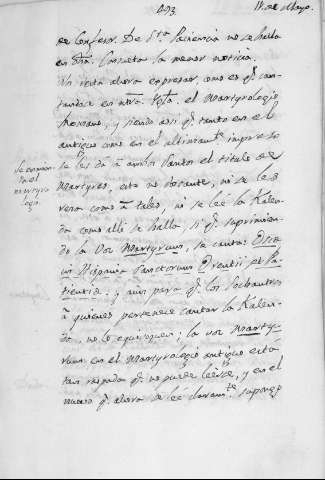 493.
11. de Mayo.
de Confesor. De Sta. Paciencia no se halla
en dha. Consueta la menor noticia.
Un resta ahora expresar, como es q. can-
tandose en ntra. Ygla. el Martyrologio
Romano, y siendo asi q. tanto en el
antiguo como en el ultimamte. impreso
se les da a ambos Santos el titulo de
Martyres, esto no obstante, ni se le
reza como a tales, ni se lee la Kalen-
da como alli se halla, si q. suprimien-
do la voz Martyrum, se canta: Oscæ
in Hispania Sanctorum Orentii, et Pa-
tientiæ: y aun para q. los Sochantres
a quienes pertenece cantar la Kalen-
da, no lo equivoquen; la voz Marty-
rum en el Martyrologio antiguo está
tan raspada q. no puede leerse, y en el
nuevo q. ahora se lee claramte. supongo
Se
en el
martyro
logio.